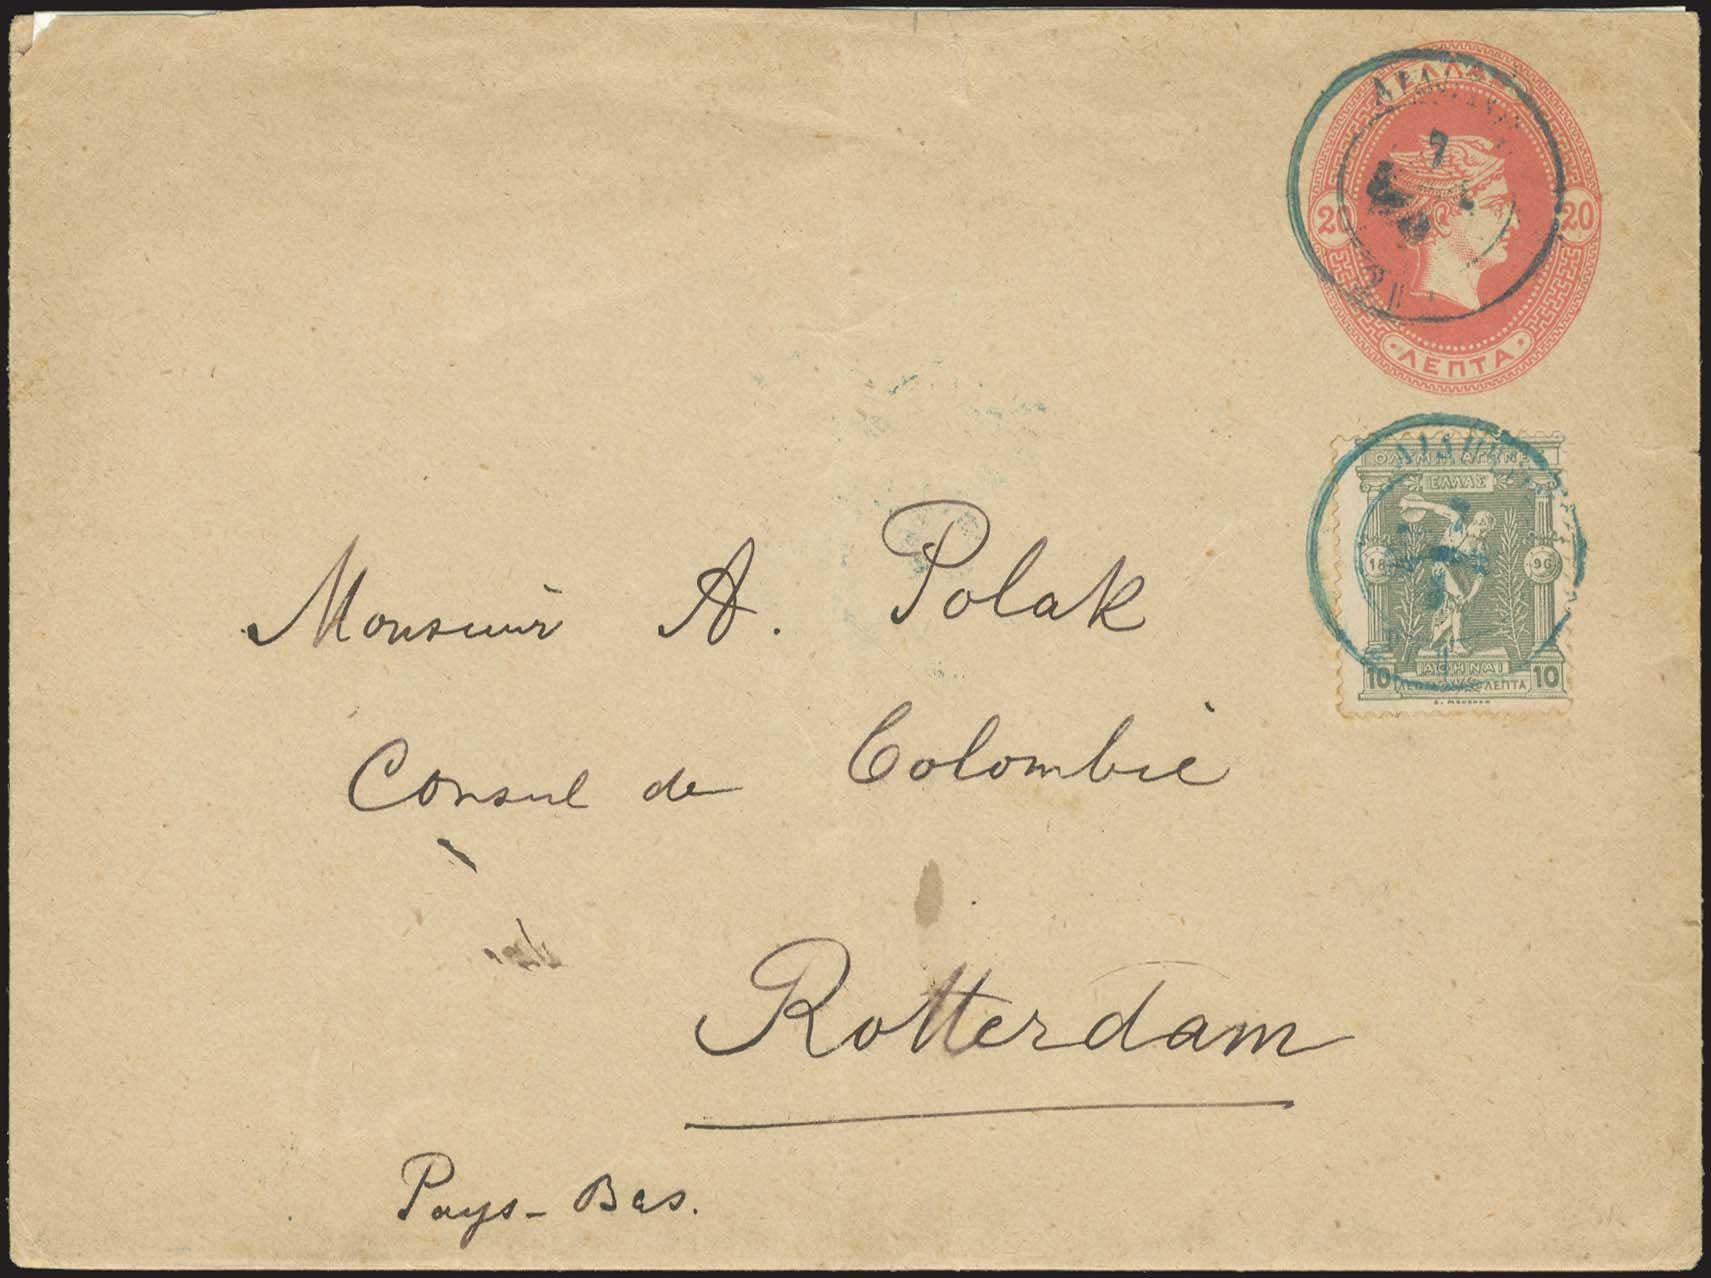 ΕΛΛΑΣ
20 20
ΛΕΠΤΑ
7
ΟΛΥΜΠ ΑΓΩΝΕΣ
ΕΛΛΑΣ
18 96
ΑΘΗΝΑΙ
10 ΛΕΠΤΑ ΛΕΠΤΑ 10
Monsieur A. Polak
Consul de Colombie
Rotterdam
Pays-Bas.